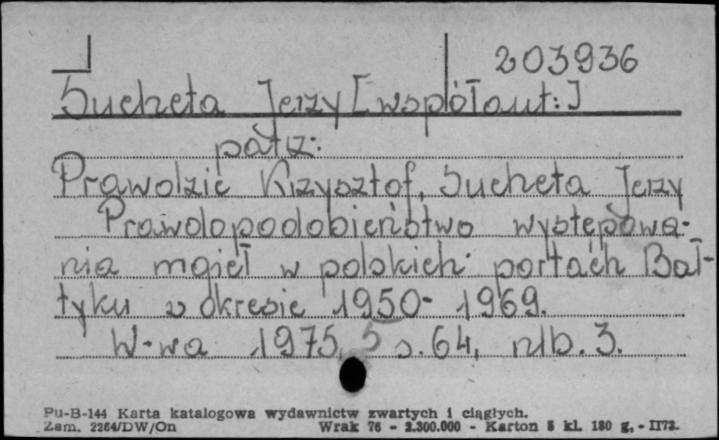 203936
Sucheta Jerzy [współaut:]
patrz:
Prawdzic Krzysztof, Sucheta Jerzy
Prawdopodobieństwo występowa-
nia mgieł w polskich portach Bał-
tyku w okresie 1950- 1969.
W-wa 1975, s. 64, nlb. 3.
Pu-B-144 Karta katalogowa wydawnictw zwartych i ciągłych.
Zam. 2264/DW/On Wrak 76 - 2.300.000 - Karton 5 kl. 180 g, - II73.